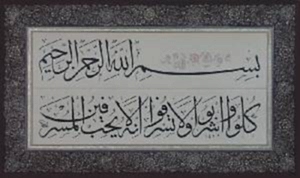 بسم الله الرحمن الرحيم
كلوا واشربوا ولا تسرفوا انه لا يحب المسرفين